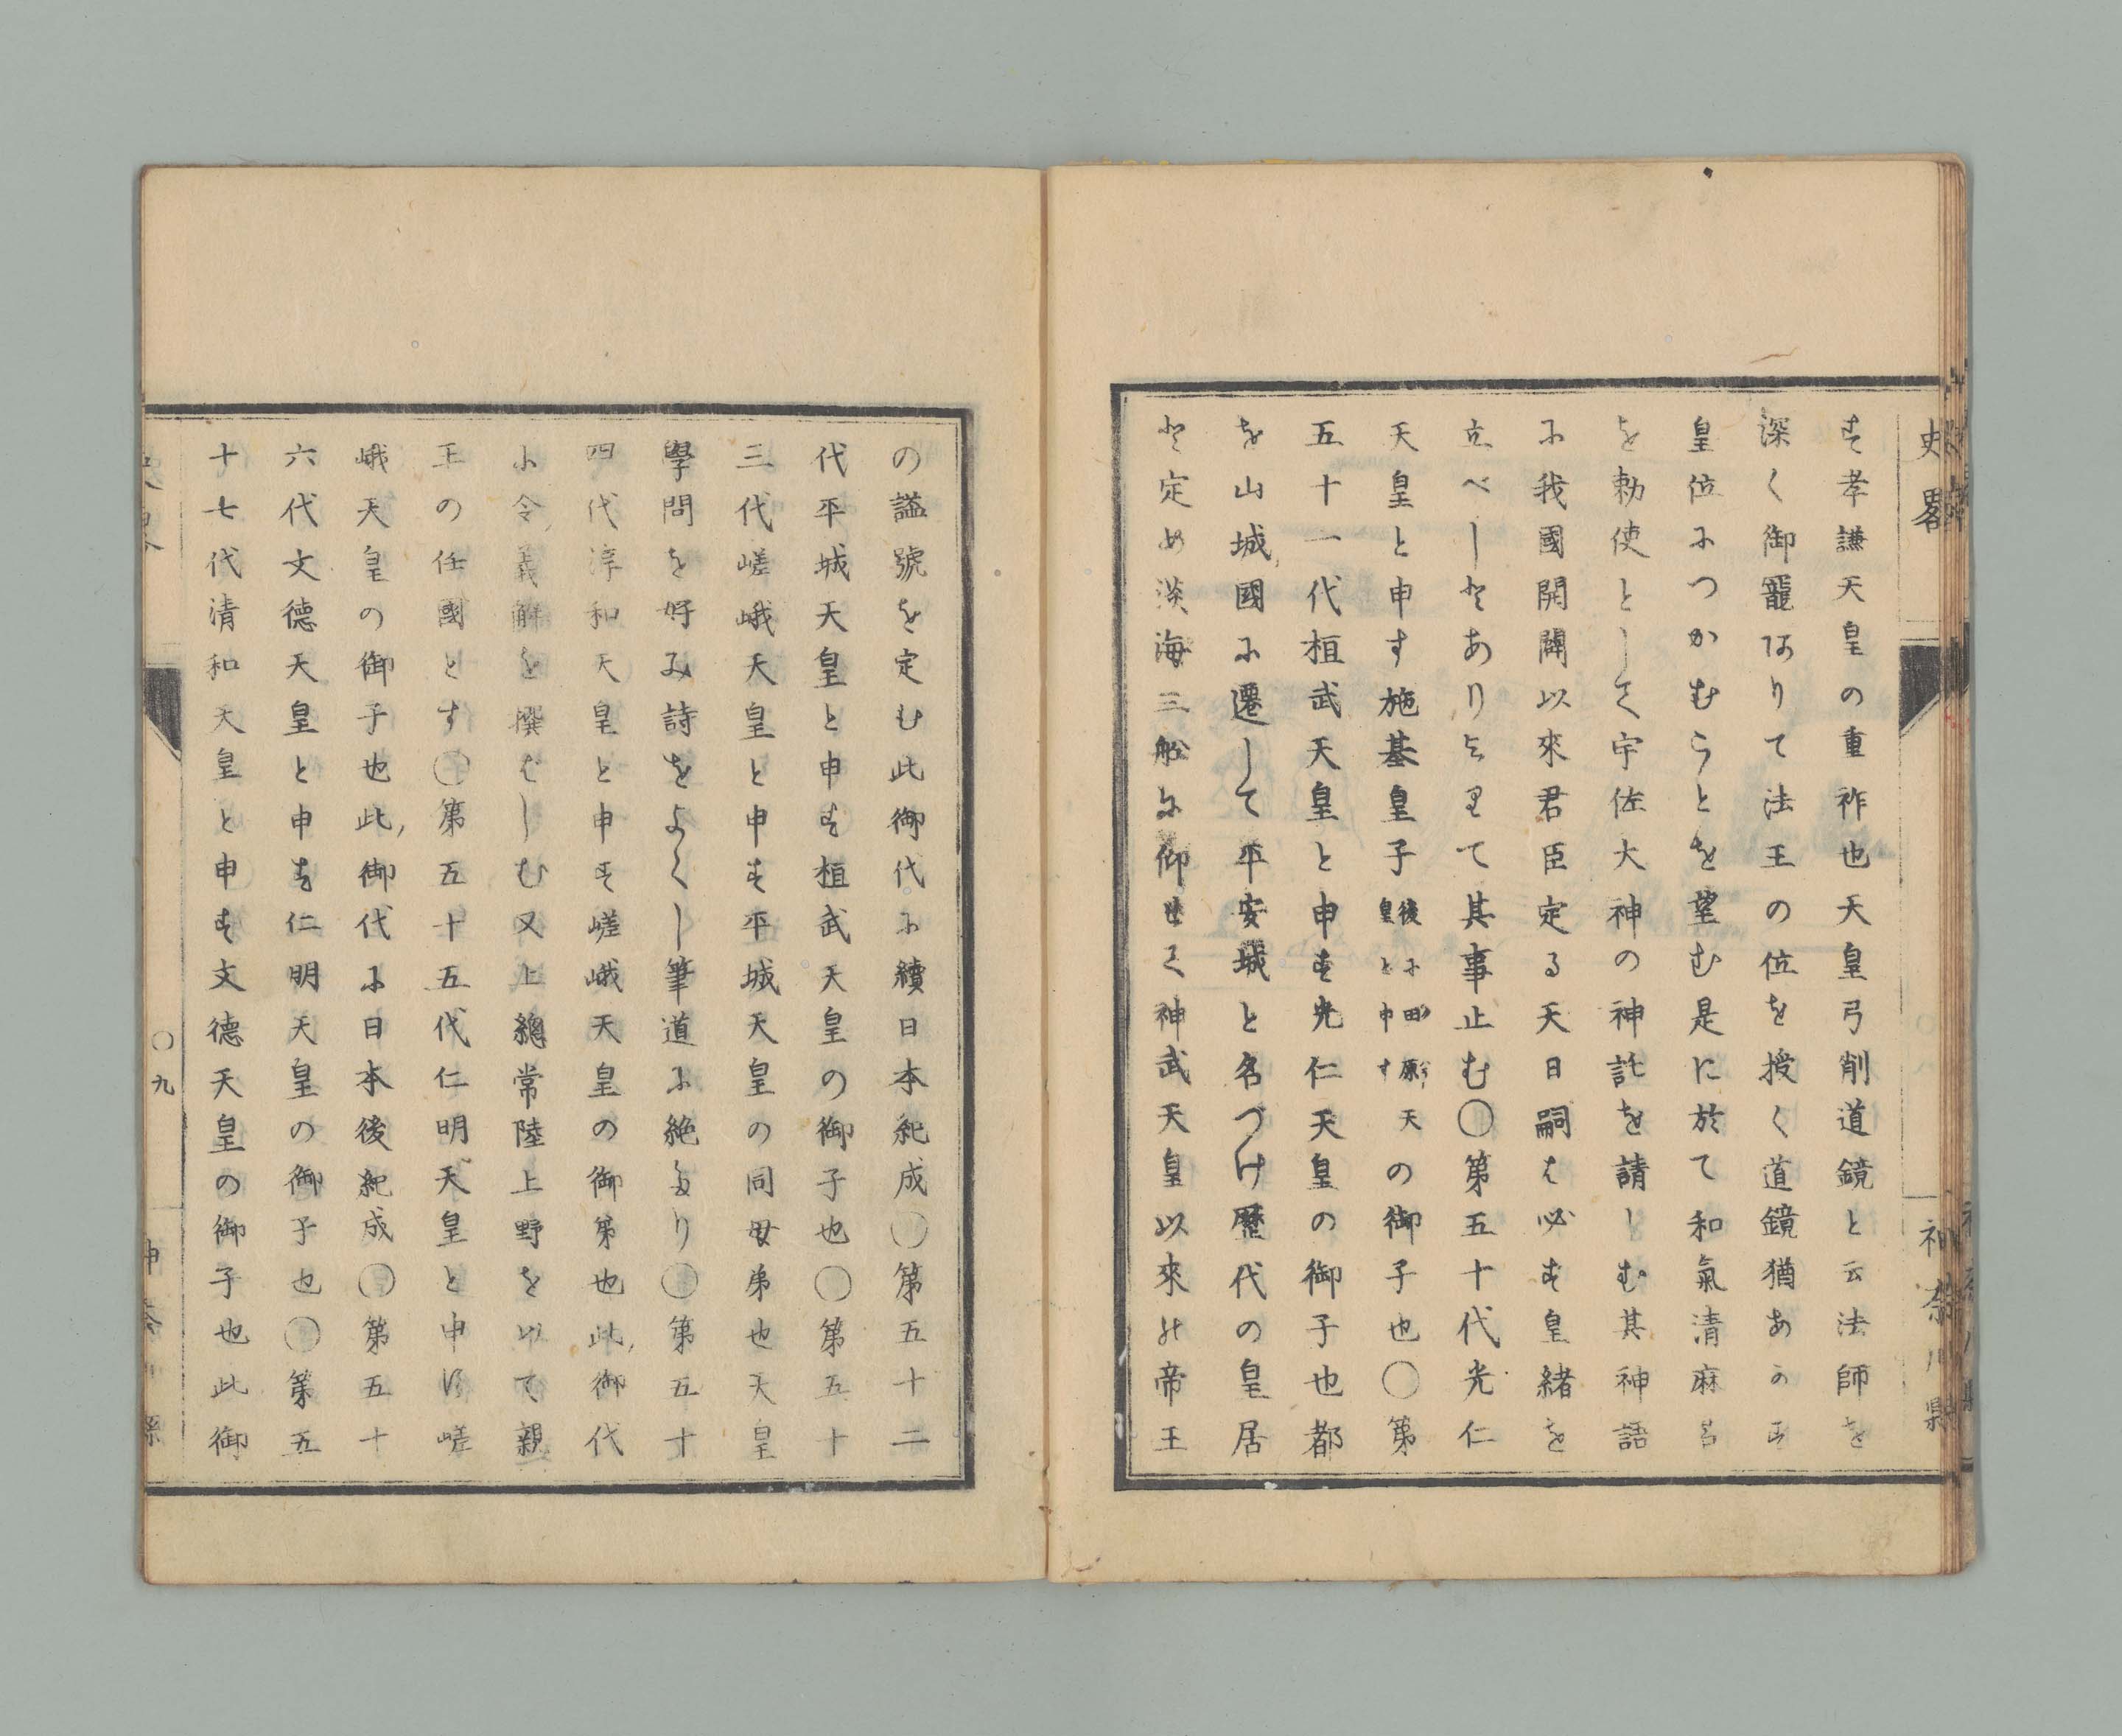 史畧
神奈川縣
す孝謙天皇の重祚也天皇弓削道鏡と云法師を
深く御寵ありて法王の位を授く道鏡猶あかず
皇位につかむことを望む是に於て和氣清麻呂
を勅使として宇佐大神の神託を請しむ其神語
に我國開闢以來君臣定る天日嗣は必ず皇緒を
立べしとありよりて其事止む〇第五十代光仁
天皇と申す施基皇子後に田原天皇と申すの御子也〇第
五十一代桓武天皇と申す光仁天皇の御子也都
を山城國に遷して平安城と名づけ歴代の皇居
と定め淡海三船に仰せて神武天皇以來の帝王
の謚號を定む此御代に續日本紀成〇第五十二
代平城天皇と申す桓武天皇の御子也〇第五十
三代嵯峨天皇と申す平城天皇の同母弟也天皇
學問を好み詩をよくし筆道に絶たり〇第五十
四代淳和天皇と申す嵯峨天皇の御弟也此御代
に令義解を撰ばしむ又上總常陸上野を以て親
王の任國とす〇第五十五代仁明天皇と申す嵯
峨天皇の御子也此御代に日本後紀成〇第五十
六代文德天皇と申す仁明天皇の御子也〇第五
十七代清和天皇と申す文德天皇の御子也此御
〇九